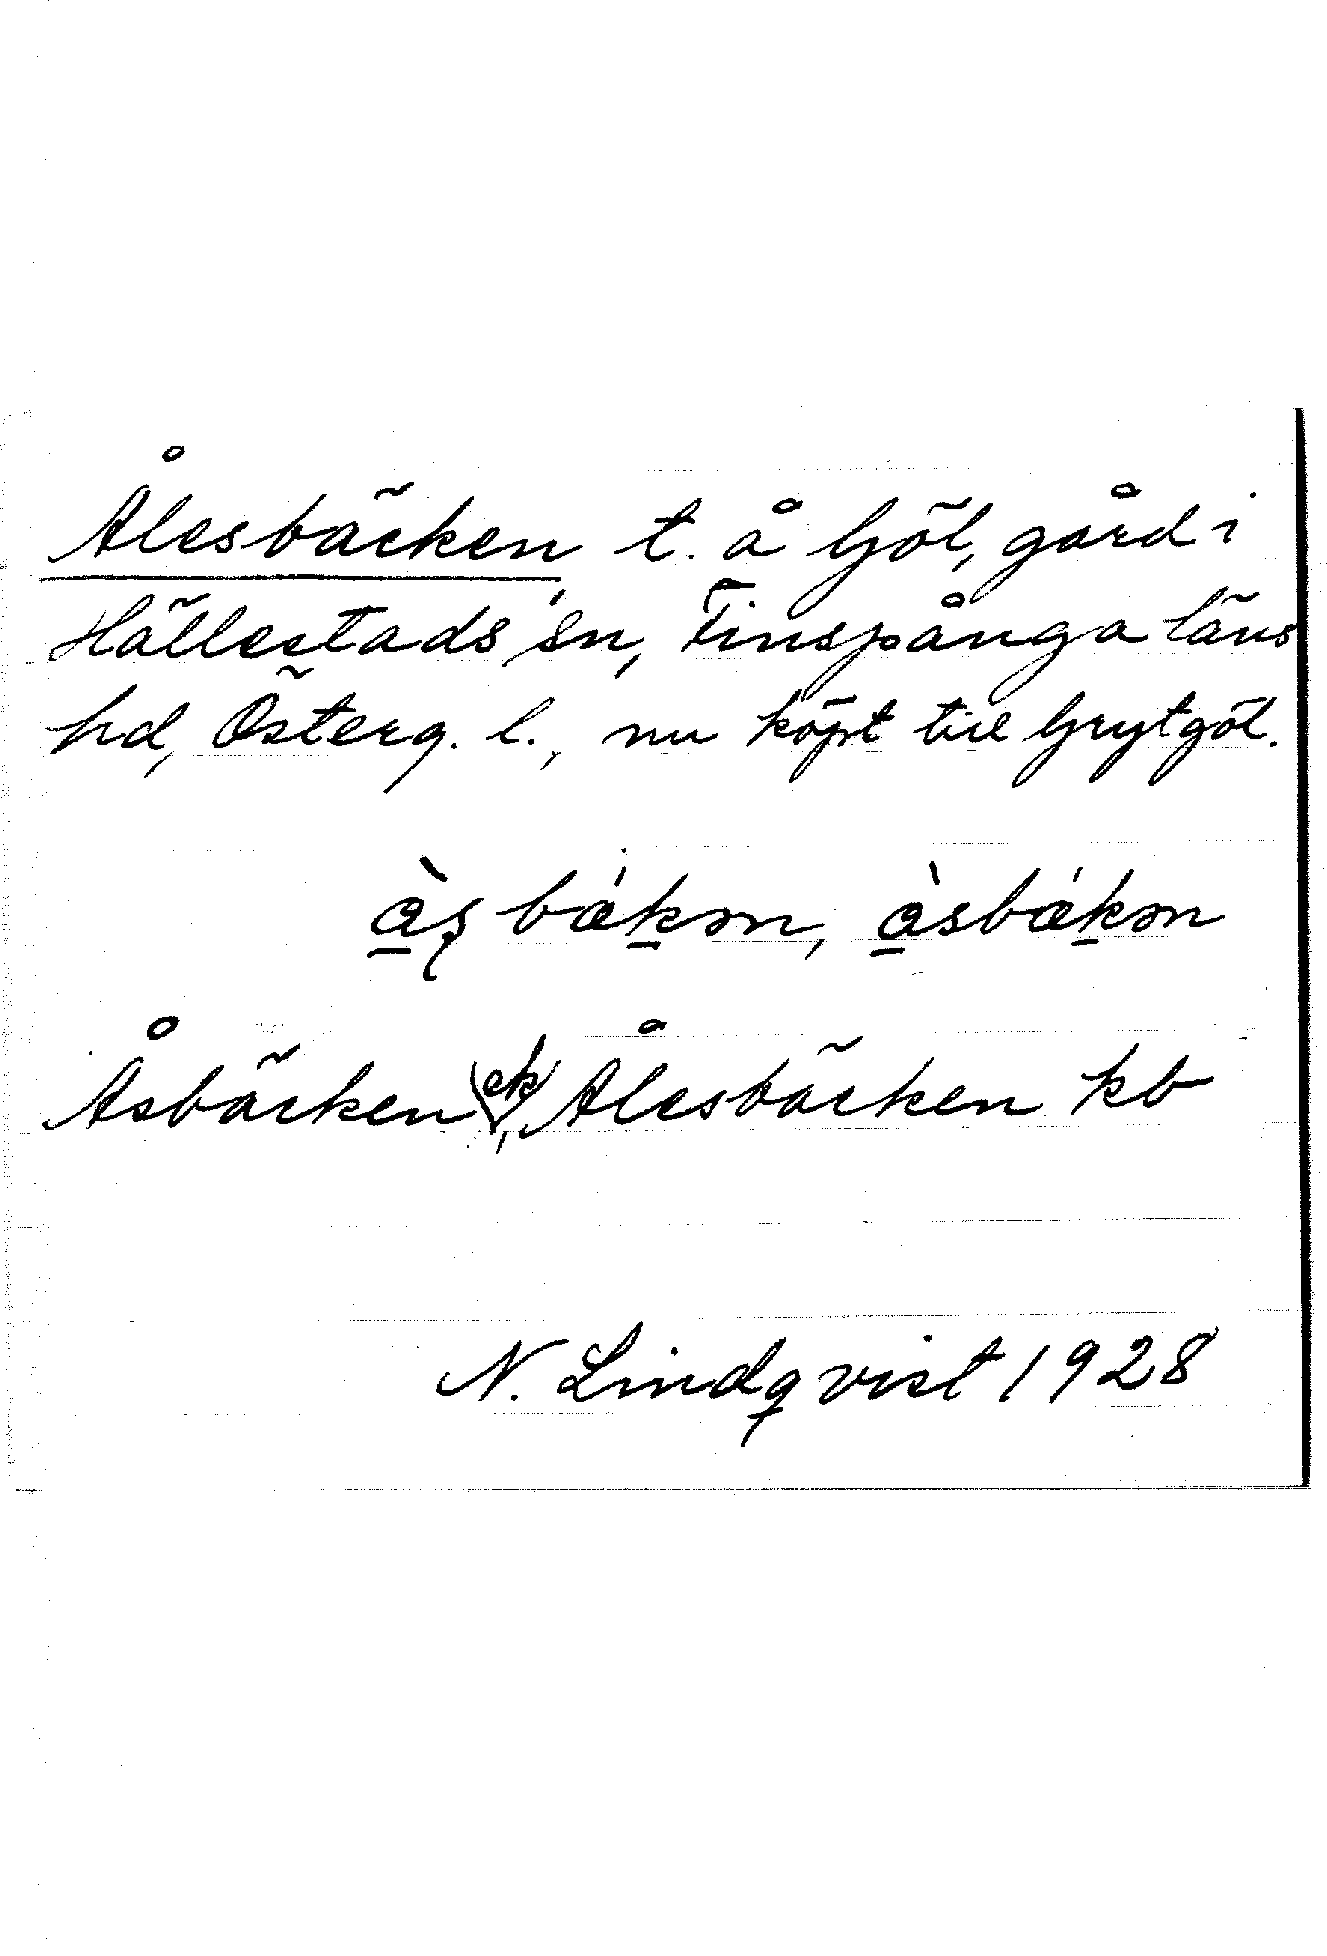 Ålesbäcken, t. å Göl, gård i
Hällestads sn, Finspånga läns
hd, Österg. l., nu köpt till Grytgöl.
à̱ʂbǽḵən, à̱sbǽḵən
Åsbäcken ek, Ålesbäcken kb
N. Lindqvist 1928